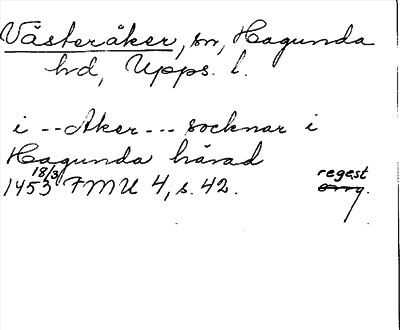 Västeråker, sn, Hagunda
hd, Upps. l.
i -- Aker --- socknar i
Hagunda härad
18/3 regest
1453 FMU 4, s. 42. orig.